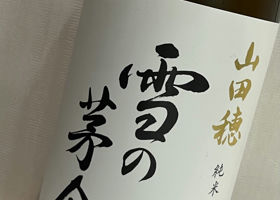 山田穂
純米
雪の
茅